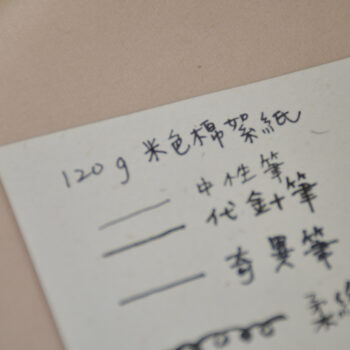 120g 米色棉絮紙
中性筆
代針筆
奇異筆